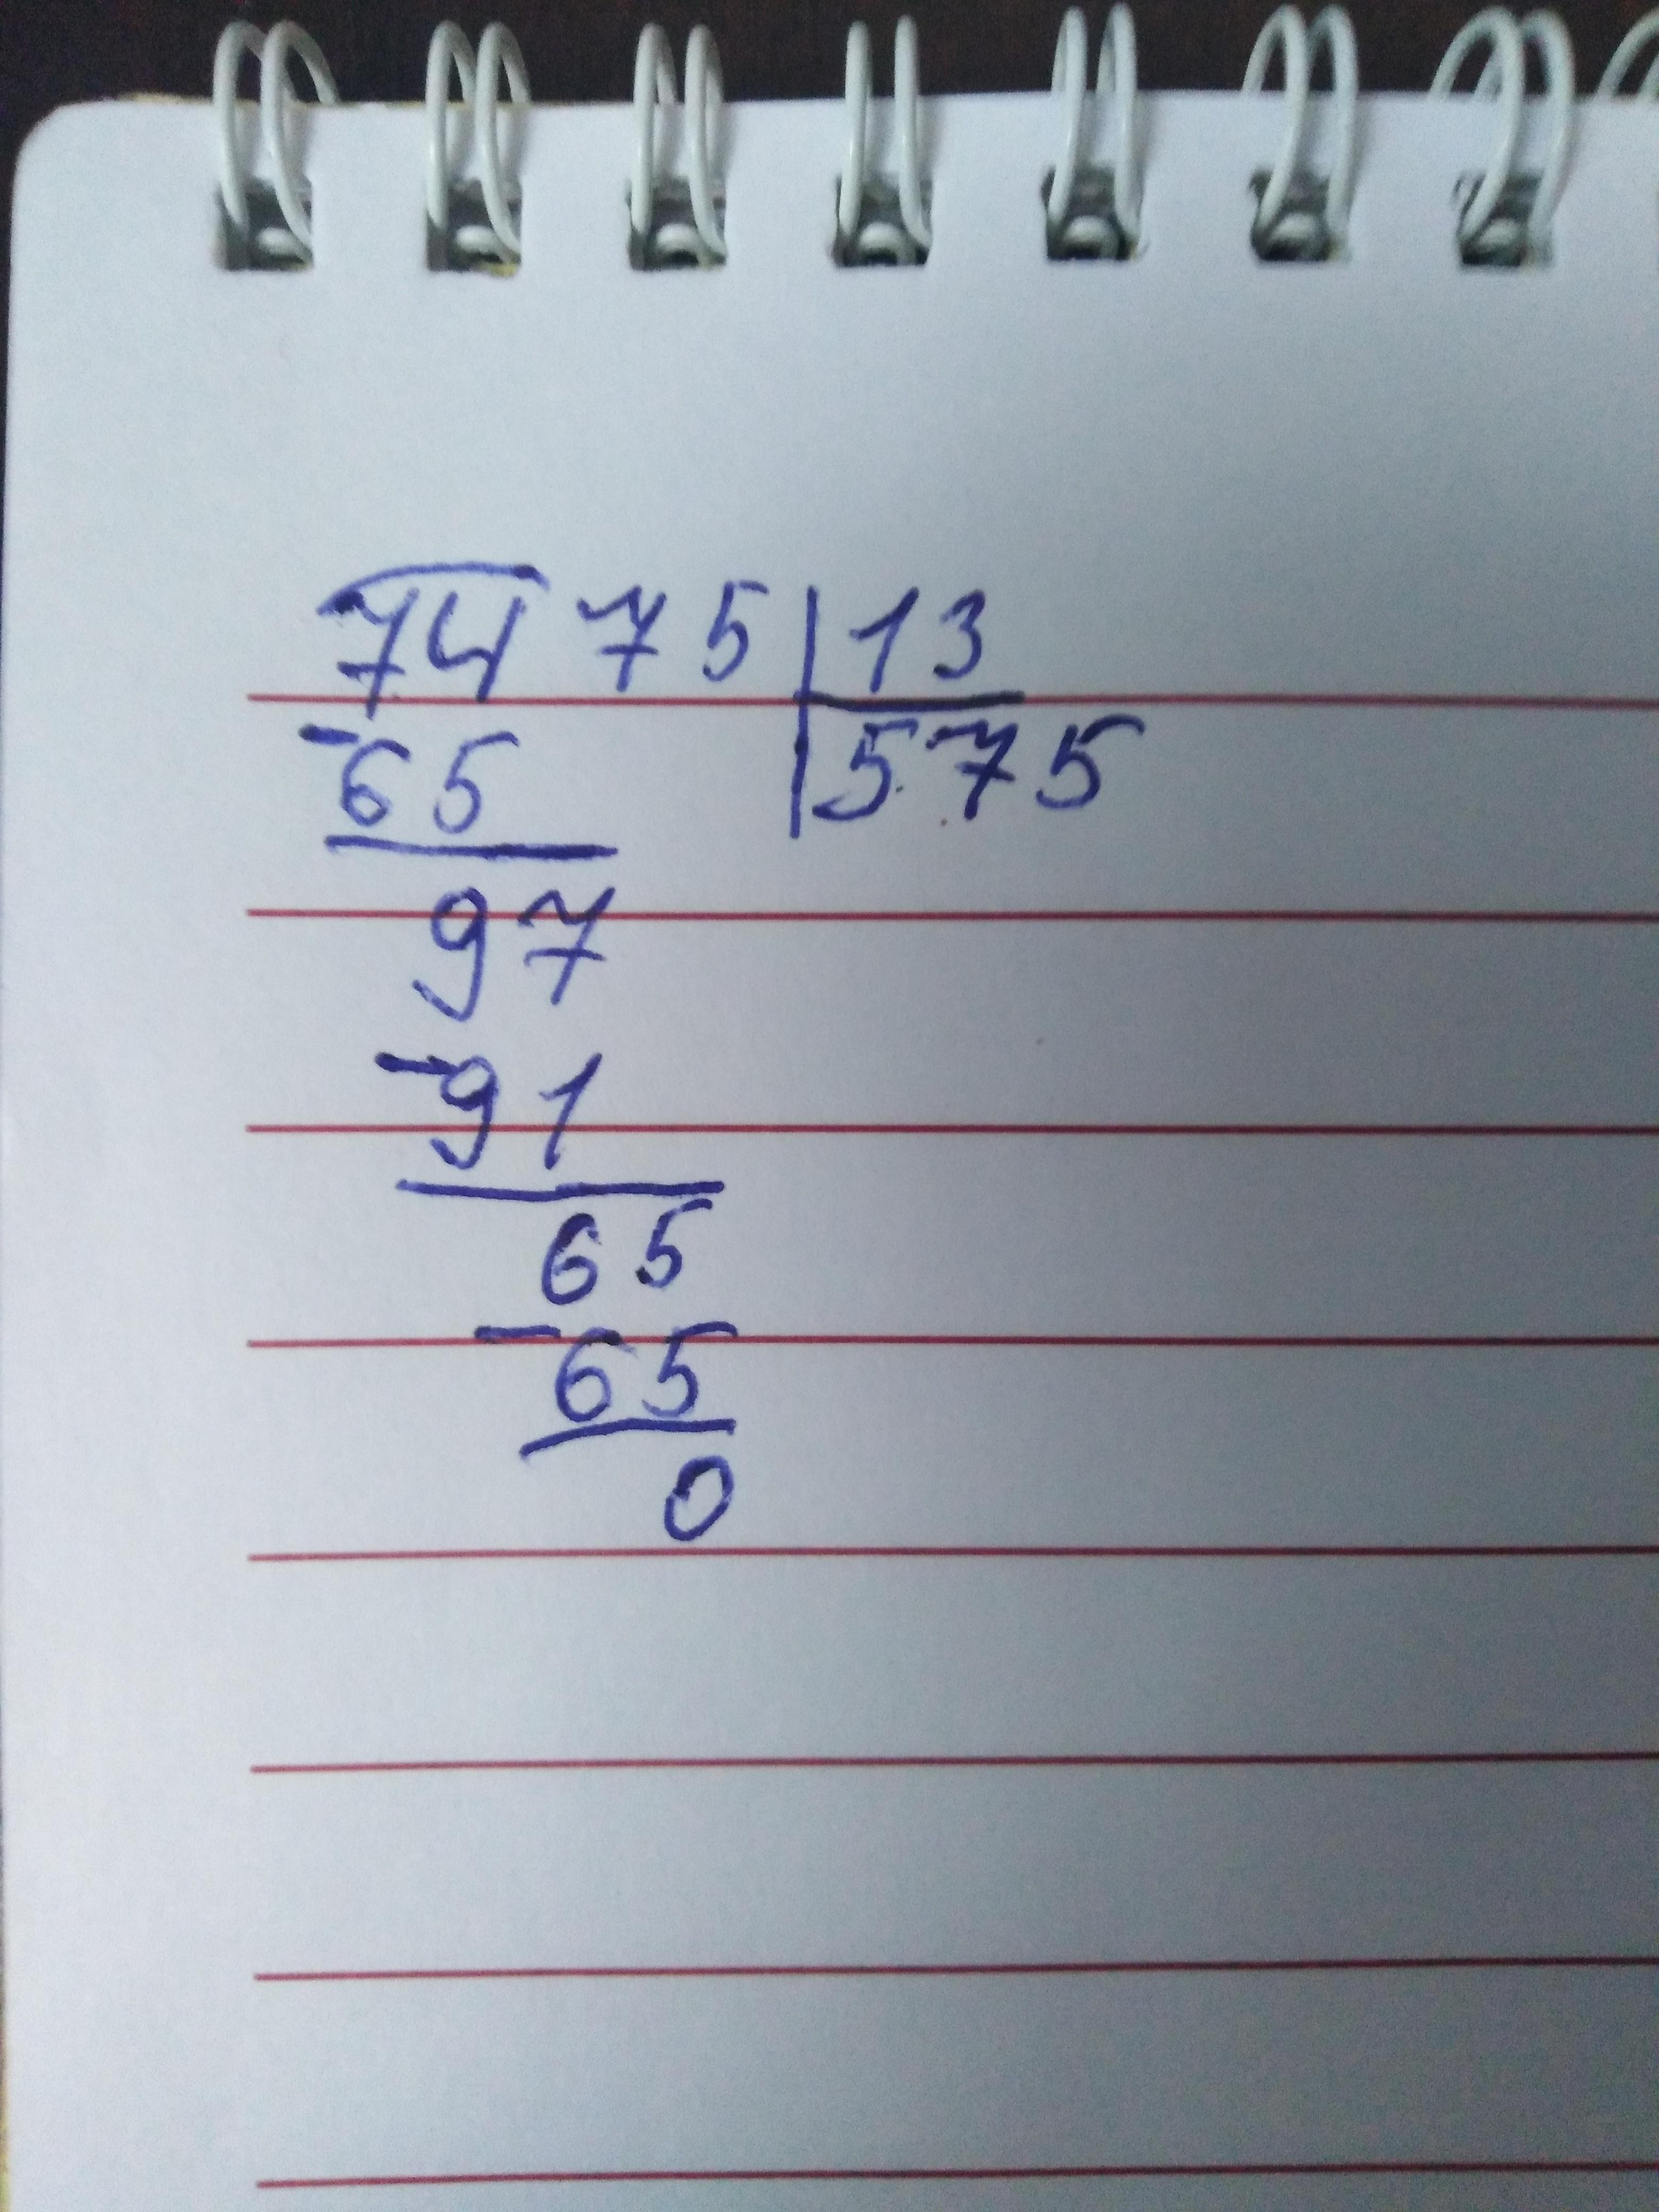 7475 | 13
-65 | 575
97
-91
65
-65
0